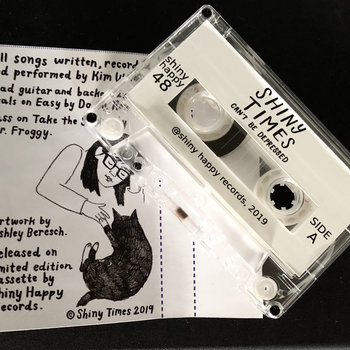 ll songs written, record
d performed by Kim W
ad guitar and back
als on Easy by Do
ss on Take the
r. Froggy.
rtwork by
shley Beresch.
eleased on
imited edition
assette by
hiny Happy
ecords.
© Shiny Times 2019
shiny
happy
48
SHINY
TIMES
CAN'T BE DEPRESSED
@shiny happy records, 2019
SIDE
A